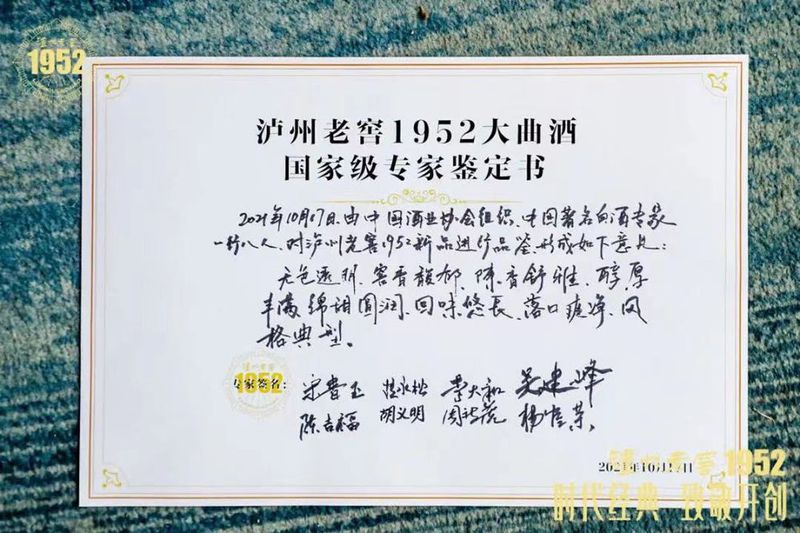 泸州老窖
1952
泸州老窖1952大曲酒
国家级专家鉴定书
2021年10月17日,由中国酒业协会组织、中国著名白酒专家
一行八人、对泸州老窖1952新品进行品鉴,形成如下意见:
无色透明、窖香馥郁、陈香舒雅、醇厚
丰满、绵甜圆润、回味悠长、落口爽净、风
格典型。
泸州老窖
1952
专家签名:
宋书玉 李大和 吴建峰
陈吉福 胡义明 杨官荣
2021年10月17日
泸州老窖 1952
时代经典 致敬开创